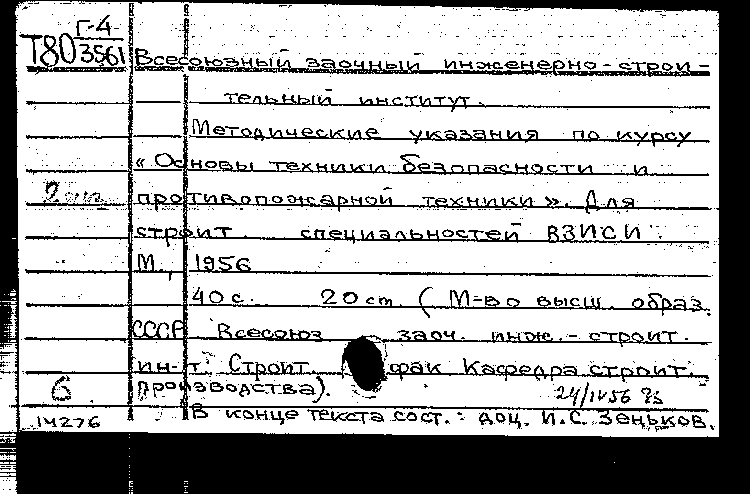 Г-4
Т80 3561 Всесоюзный заочный инженерно-строи-
тельный институт.
Методические указания по курсу
« Основы техники безопасности и
противопожарной техники ». Для
строит. специальностей ВЗИСИ.
М., 1956
40 с. 20 см. ( М-во высш. образ.
СССР Всесоюз. заоч. инж.-строит.
ин-т. Строит. фак. Кафедра строит.
6 производства). 24/IV 56
14276 В конце текста сост.: доц. И.С. Зеньков.